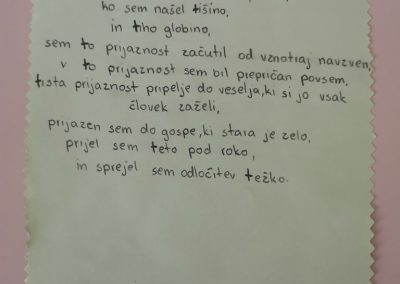 ko sem našel tišino,
in tiho globino,
sem to prijaznost začutil od vznotraj navzven,
v to prijaznost sem bil prepričan povsem,
tista prijaznost pripelje do veselja, ki si jo vsak
človek zaželi,
prijazen sem do gospe, ki stara je zelo,
prijel sem teto pod roko,
in sprejel sem odločitev težko.